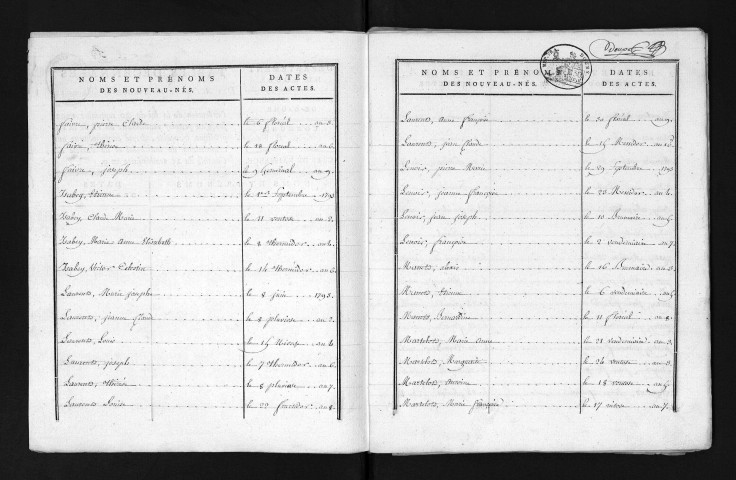 NOMS ET PRÉNOMS
DES NOUVEAU-NÉS.
DATES
DES ACTES.
faivre, pierre Claude le 6 floréal an 3.
faivre, thérèse le 18 floréal an 6.
faivre, joseph le 9 Germinal an 9.
Isabey, Etienne le 1er Septembre 1793
Isabey, Claude Marie le 11 ventose an 2.
Isabey, Marie Anne Elizabeth le 8 thermidor an 4.
Isabey, Victor Celestin le 14 thermidor an 6.
Laurent, Marie josephe le 8 juin 1793.
Laurent, jeanne Claude le 8 pluviose an 2.
Laurent, Louis le 15 Nivose an 4
Laurent, joseph le 7 thermidor an 6.
Laurent, thérèse le 8 pluviose an 7.
Laurent, Louise le 22 fructidor an 8.
NOMS ET PRÉNOMS
DES NOUVEAU-NÉS.
DATES
DES ACTES.
Laurent, Anne françoise le 30 floréal an 9.
Laurent, jean Claude le 15 Messidor an 10.
Lenoir, pierre Marie le 29 Septembre 1793
Lenoir, jeanne françoise le 23 Messidor an 4.
Lenoir, jean joseph le 10 Brumaire an 5.
Lenoir, françoise le 2 vendemiaire an 7.
Manots, alexis le 16 Brumaire an 3.
Manots, Etienne le 6 vendemiaire an 5.
Manots, Bernardine le 11 floréal an 8.
Martelots, Marie Anne le 21 vendemiaire an 3.
Martelots, Marguerite le 24 ventose an 3.
Martelots, Antoine le 18 ventose an 5.
Martelots, Marie françoise le 17 nivose an 7.